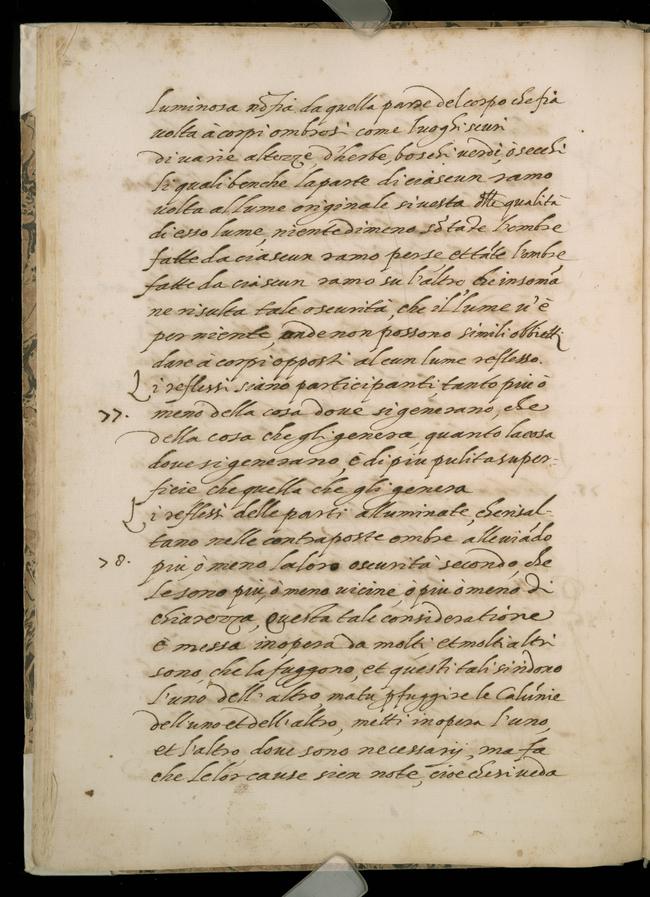 luminosa nõ fia da quella parte del corpo che fia
volta à corpi ombrosi come luoghi scuri
di varie altezze, d'herbe, boschi verdi, ò secchi
li quali benche la parte di ciascun ramo
volta al lume originale si vesta dlle qualità
di esso lume, niente di meno sõ tãte l'ombre
fatte da ciascun ramo per se et tãte l'ombre
fatte da ciascun ramo su l'altro che in soma
ne risulta tale oscurità, che il lume v'è
per niente, onde non possono simili obbietti
dare à corpi opposti alcun lume reflesso.
Li reflessi siano participanti, tanto più ò
77. meno della cosa dove si generano, che
della cosa che gli genera quanto la cosa
dove si generano, è di più pulita super-
ficie che quella che gli genera
Li reflessi delle parti alluminate, che risal-
tano nelle contraposte ombre alleviãdo
78. più, ò meno la loro oscurità secondo, che
le sono più, ò meno vicine, ò più ò meno di
chiarezza, Questa tale consideratione
è messa in opera da molti et molti altri
sono, che la fuggono, et questi tali si ridono
l'uno dell'altro, ma tu p fuggire le Calunie
dell'uno et dell'altro, metti in opera l'uno
et l'altro dove sono necessarij, ma fa
che le lor cause sien note, cioe che si veda